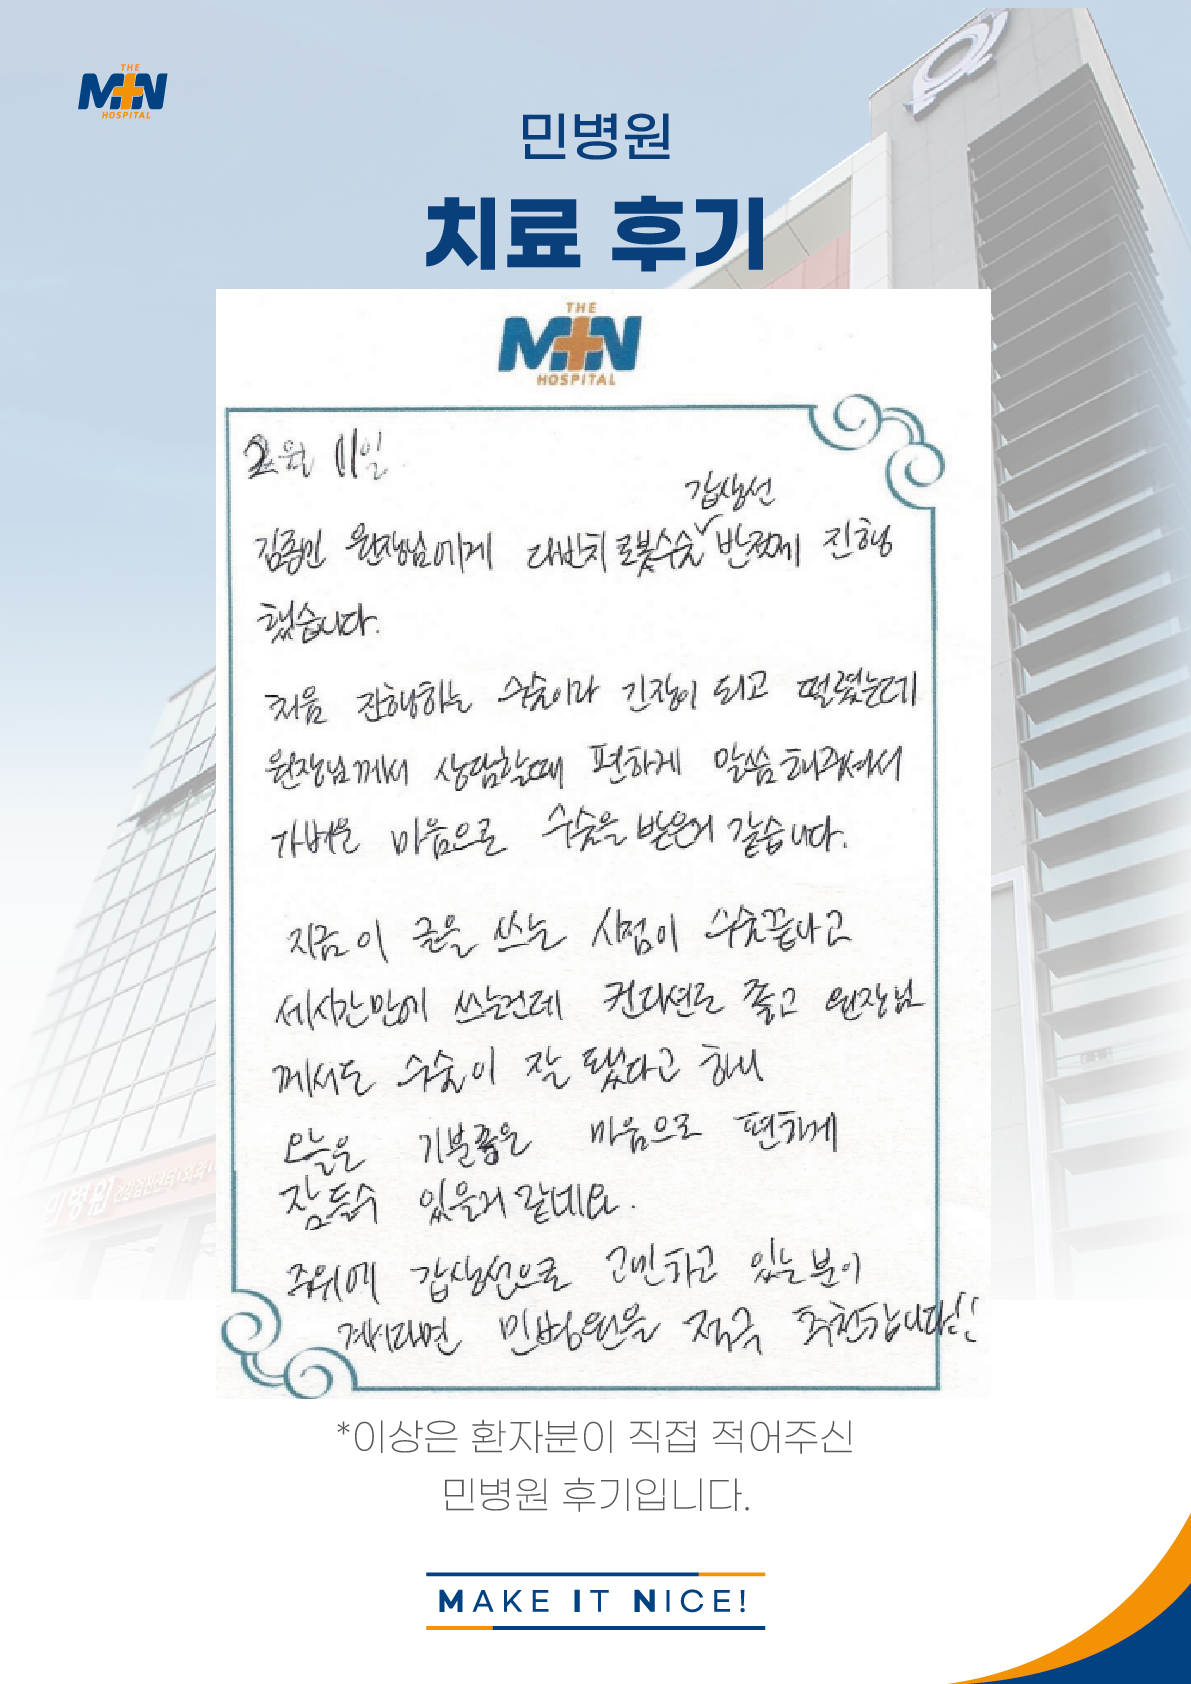 THE
MIN
HOSPITAL
민병원
치료 후기
THE
MIN
HOSPITAL
2월 11일
갑상선
김종민 원장님에게 다빈치 로봇수술 반절제 진행
했습니다.
처음 진행하는 수술이라 긴장이 되고 떨렸는데
원장님께서 상담할때 편하게 말씀해주셔서
가벼운 마음으로 수술을 받은거 같습니다.
지금 이 글을 쓰는 시점이 수술끝나고
세시간만에 쓰는건데 컨디션도 좋고 원장님
께서도 수술이 잘 됐다고 하니
오늘은 기분좋은 마음으로 편하게
잠들수 있을거 같네요.
주위에 갑상선으로 고민하고 있는 분이
계시다면 민병원을 적극 추천합니다!!
민병원
*이상은 환자분이 직접 적어주신
민병원 후기입니다.
MAKE IT NICE!